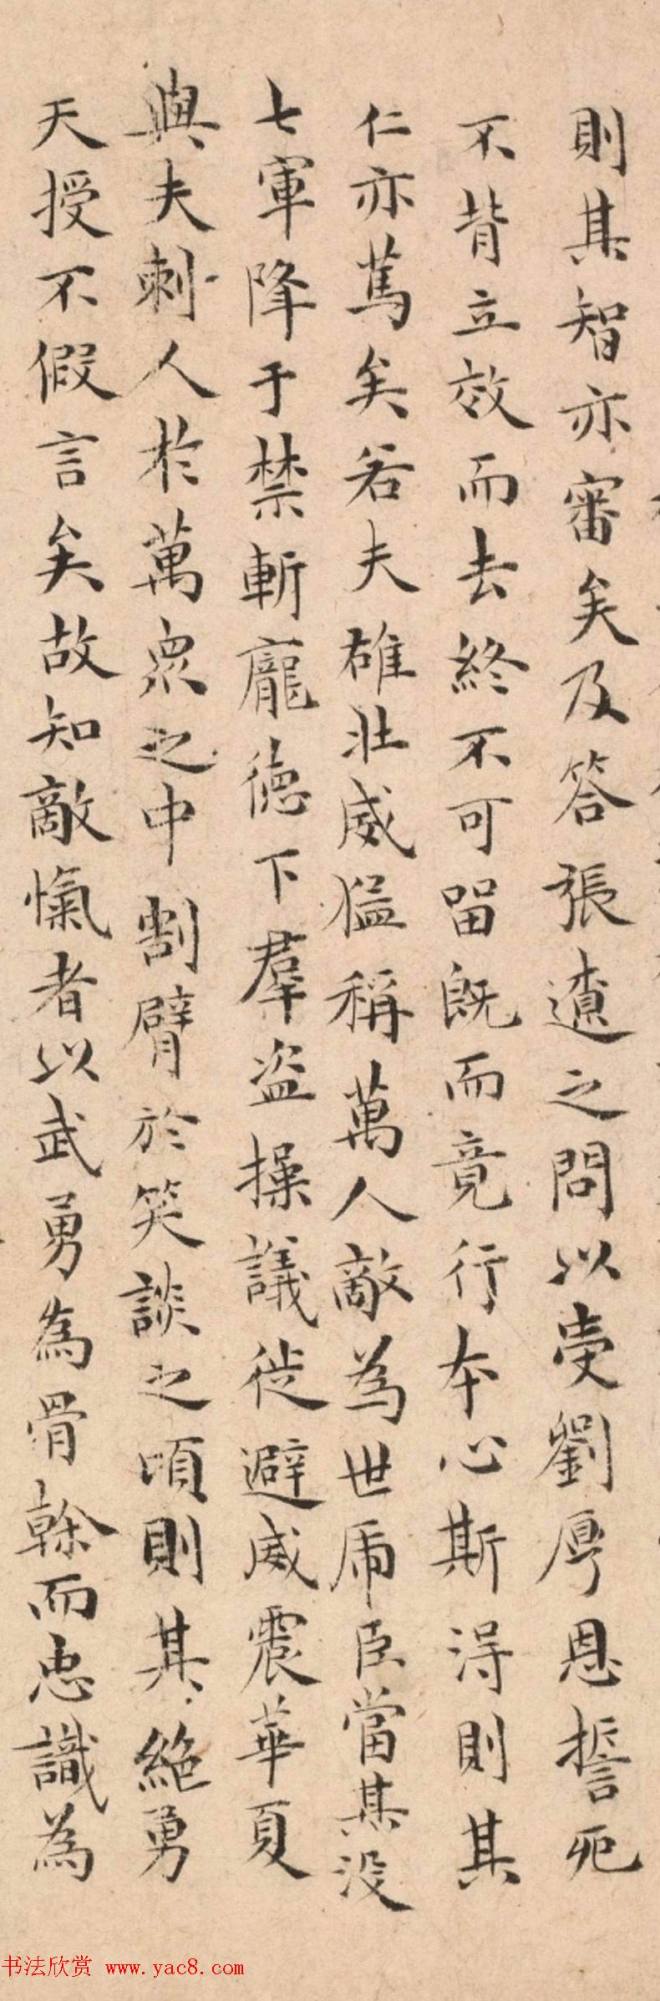 則其智亦審矣及答張遼之問以受劉厚恩誓死
不背立效而去終不可留既而竟行本心斯得則其
仁亦篤矣若夫雄壯威猛稱萬人敵為世虎臣當其没
七軍降于禁斬龐德下羣盜操議徙避威震華夏
與夫刺人於萬衆之中割臂於笑談之頃則其絶勇
天授不假言矣故知敵愾者以武勇為骨榦而忠識為
书法欣赏 www.yac8.com